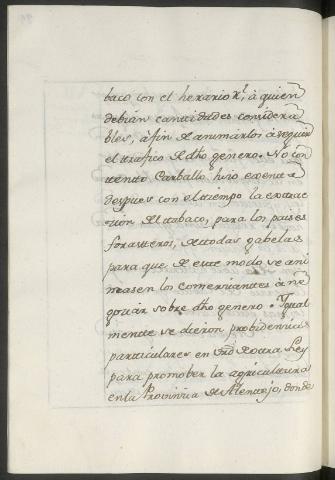 baco con el herario Rl, à quien
debian cantidades considera
bles, à fin de animarlos à seguir
el trafico de dho genero. No con
tento Carballo hizo exenta
despues con el tiempo la extrac
cion del tabaco, para los paises
forasteros, de todas gabelas
para que de este modo se ani
masen los comerciantes à ne
gociar sobre dho genero. Igual
mente se dieron probidencias
particulares en de otra Ley
para promober la agricultura
en la Provincia de Alentejo, donde